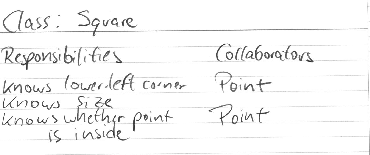 Class: Square
Responsibilities Collaborators
knows lower-left corner Point
knows size
knows whether point Point
is inside